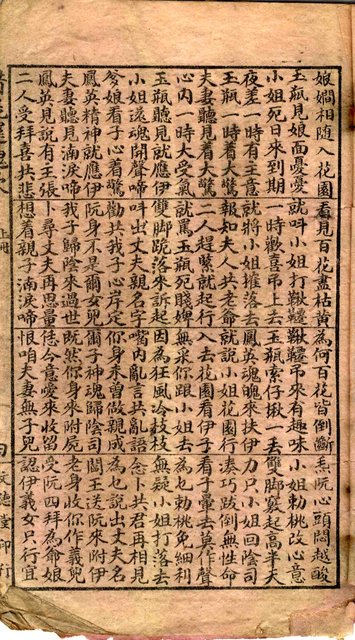 娘嫺相隨入花園 看見百花盡枯黃 為何百花皆倒斷 阮心頭悶越酸
玉瓶見娘面憂憂 就呌小姐打鞦韆 鞦韆吊來有趣味 小姐勅桃改心意
小姐死日來到期 一時歡喜吊上去 玉瓶索仔揪一丟 籠脚竅起高半天
夜差一時有主意 就將小姐摧落去 鳳英魂魄來扶伊 刀只小姐回陰司
玉瓶一時着大驚 報知夫人共老爺 就說小姐花園行 湊巧跋倒無性命
夫妻聽見着大驚 二人趕緊就起行 入去花園看伊子 看子暈去莫作聲
心內一時大受氣 就罵玉瓶死賤婢 無采你跟小姐去 為乜勅桃免細利
玉瓶聽見就應伊 雙脚跪落來訴起 因為狂風冷枝枝 無疑小姐打落去
小姐還魂開聲啼 呌出丈夫親名字 嘴內亂言共亂語 念卜共君再相見
爹娘看子心着驚 勸共我子心岸定 你身未曾做親成 為乜說出丈夫名
鳳英精神就應伊 阮身不是爾女兒 爾子神魂歸陰司 閻王送阮來附伊
夫妻聽見滴淚啼 我子歸陰來過世 既然你身來附屍 老身收你作義兒
鳳英見說有主張 卜尋丈夫再思量 恁今意愛來收留 受阮四拜為爺娘
二人受拜喜共悲 想着親子滴淚啼 恨咱夫妻無子兒 認伊義女只行宜
文德堂印行